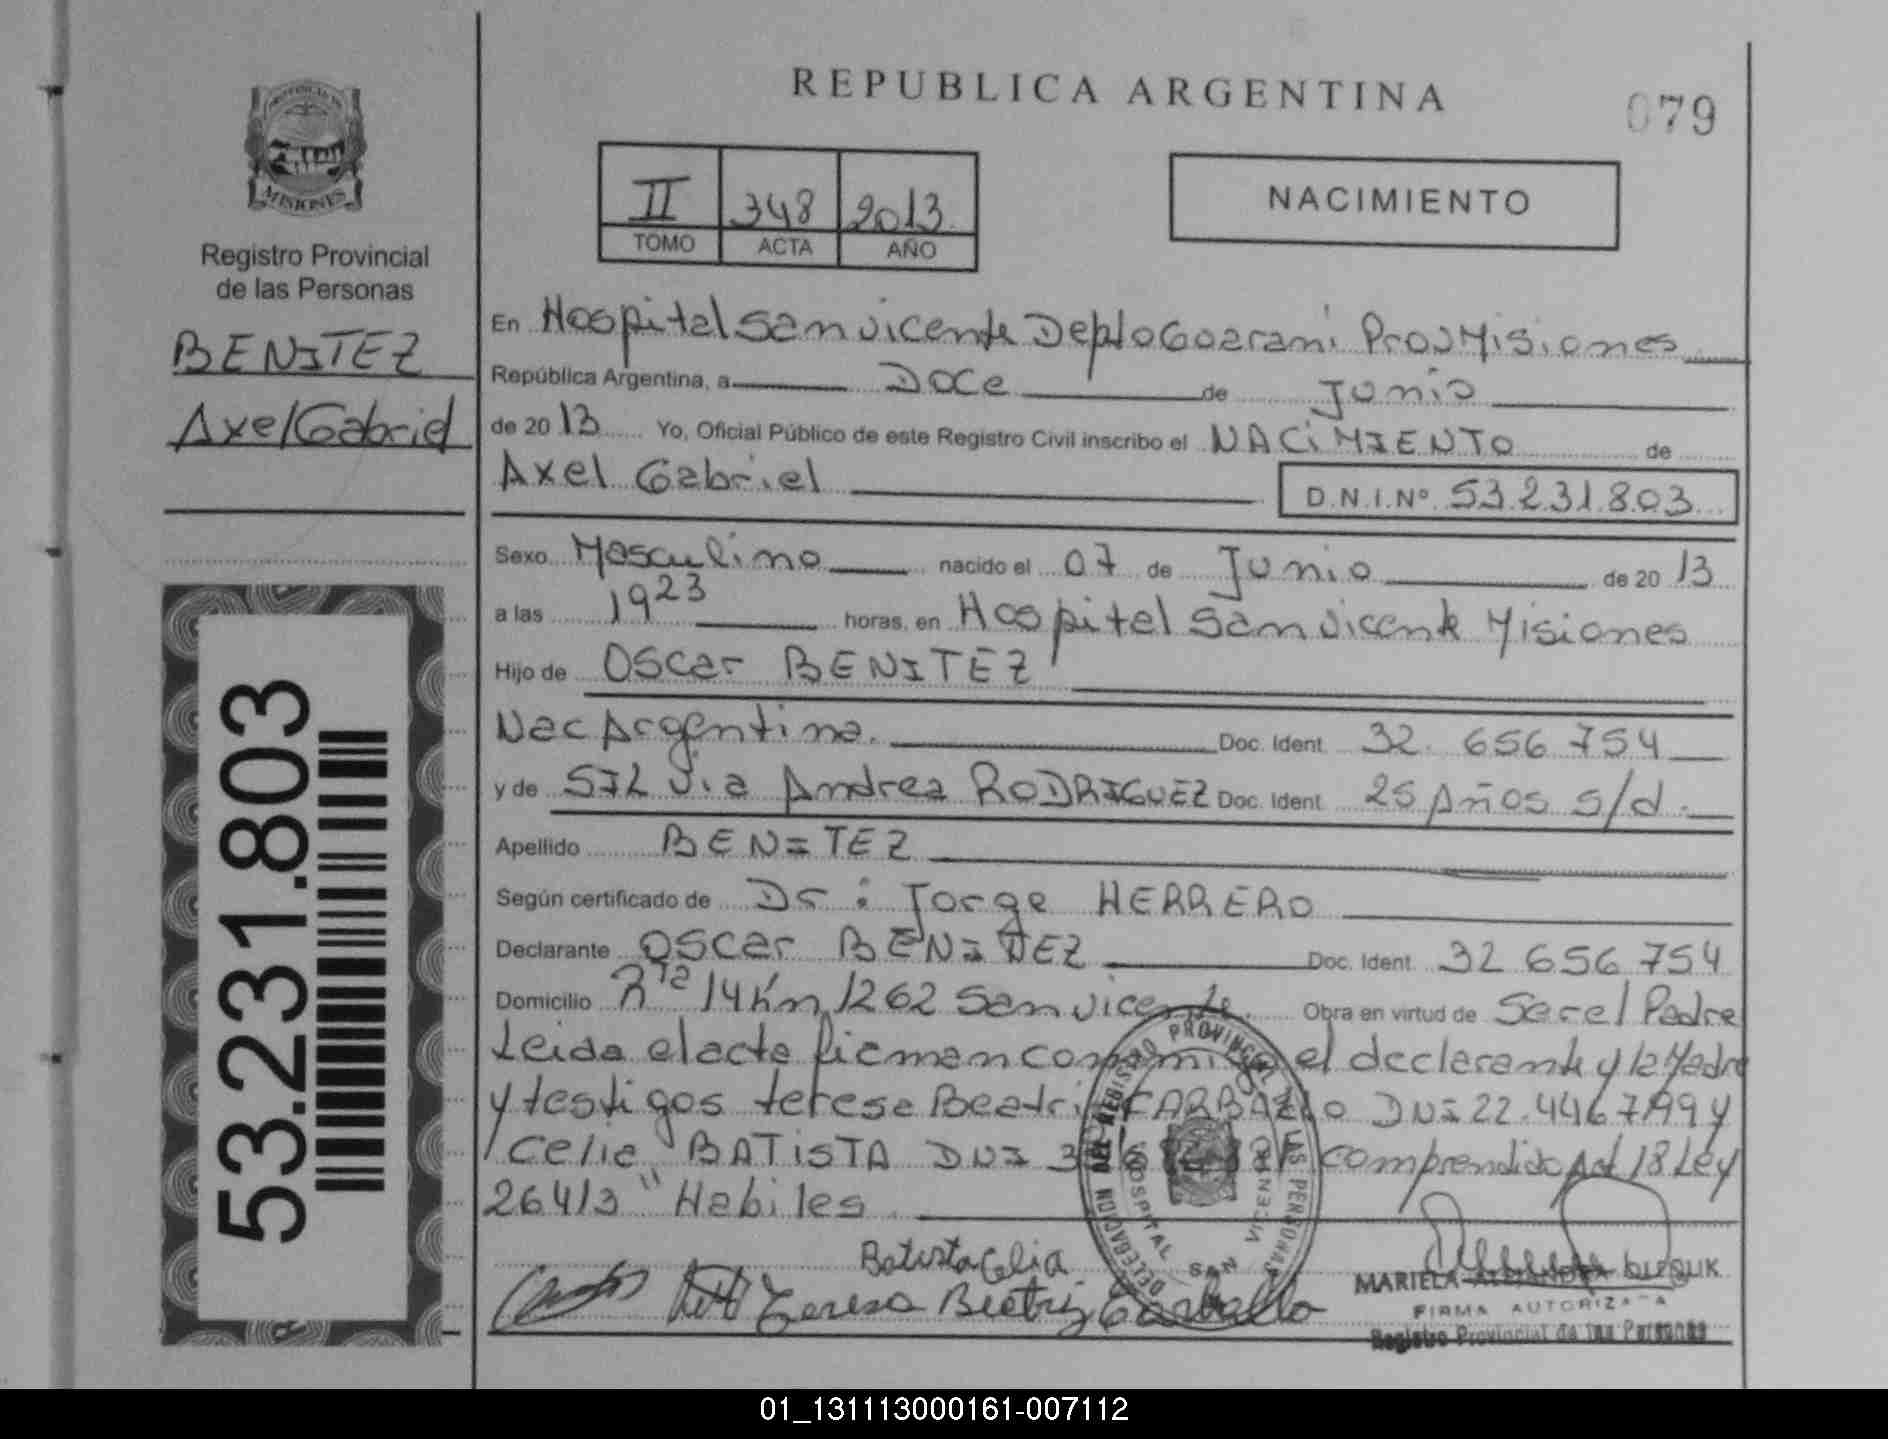 REPUBLICA ARGENTINA
079
MISIONES
Registro Provincial
de las Personas
BENITEZ
Axel Gabriel
53.231.803
II 348 2013
TOMO ACTA AÑO
NACIMIENTO
En Hospital San Vicente Depto Guarani Prov Misiones
República Argentina, a Doce de Junio
de 2013 Yo, Oficial Público de este Registro Civil inscribo el NACIMIENTO de
Axel Gabriel D.N.I.Nº 53.231.803
Sexo Masculino nacido el 07 de Junio de 2013
a las 19 23 horas, en Hospital San Vicente Misiones
Hijo de Oscar BENITEZ
Nac Argentina. Doc. Ident 32.656 754
y de SILVia Andrea RODRIGUEZ Doc. Ident 25 Años s/d.
Apellido BENITEZ
Según certificado de Dr: Jorge HERRERO
Declarante Oscar BENITEZ Doc. Ident 32 656 754
Domicilio Rta 14 Km 1262 San Vicente. Obra en virtud de Ser el Padre
Leida el acta firman conmigo el declarante y la Madre
y testigos teresa Beatriz CARBALLO DNI 22.446799 y
Celia BATISTA DNI comprendido Art 18 Ley
26413 " Habiles
Batista Celia
Teresa Beatriz Carballo
DELEGACION DEL REGISTRO PROVINCIAL DE LAS PERSONAS
HOSPITAL SAN VICENTE
MARIELA
FIRMA AUTORIZADA
Registro Provincial de las Personas
01_131113000161-007112